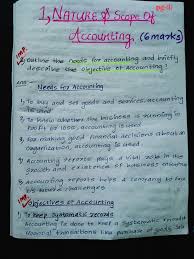 1, NATURE & Scope Of
Accounting. (6 marks)
Outline the needs for accounting and briefly
describe the objective of Accounting.
Ans
Needs for Accounting
1) To buy and set goods and services, accounting
is used
2) To know whether the business is running in
Profit or loss, accounting is used.
3) For making good financial decisions about an
organization, account is used.
4) Accounting reports plays a vital role in the
growth and existence of business
5) Accounting reports helps a company to face
challenges
Objectives of Accounting
1) To keep Systematic records
Accounting is done to keep a Systematic records
financial transactions like purchase of goods, sale